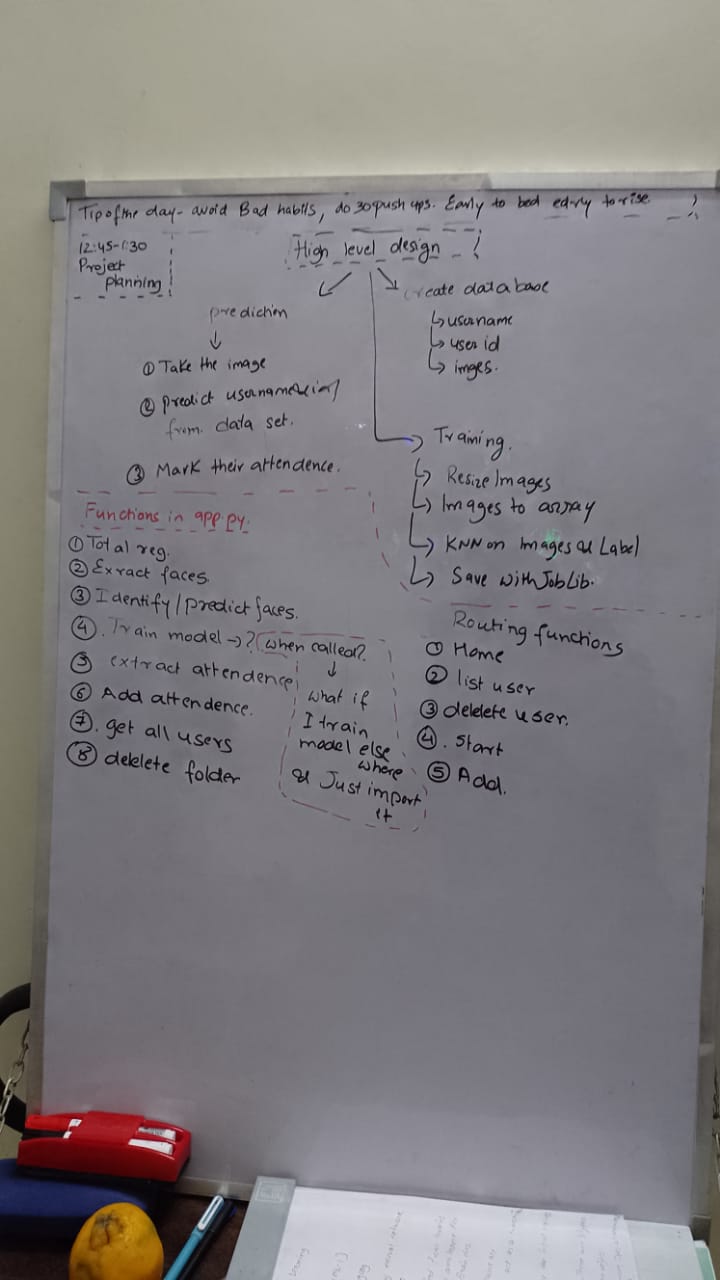 Tip of the day - avoid Bad habits, do 30 push ups. Early to bed early to rise
12:45-1:30
Project
planning
High level design
prediction
① Take the image
② Predict username
from data set.
③ Mark their attendence.
create database
↳ username
↳ user id
↳ imges.
Training.
↳ Resize Images
↳ Images to array
↳ KNN on Images & Label
↳ Save with JobLib.
Functions in app.py.
① Total reg.
② Exract faces.
③ Identify/predict faces.
④. Train model →? when called?
⑤ extract attendence
⑥ Add attendence.
⑦. get all users
⑧ delelete folder
what if
I train
model else
where
& Just import
it
Routing functions
① Home
② list user
③ delelete user.
④. Start
⑤ Add.